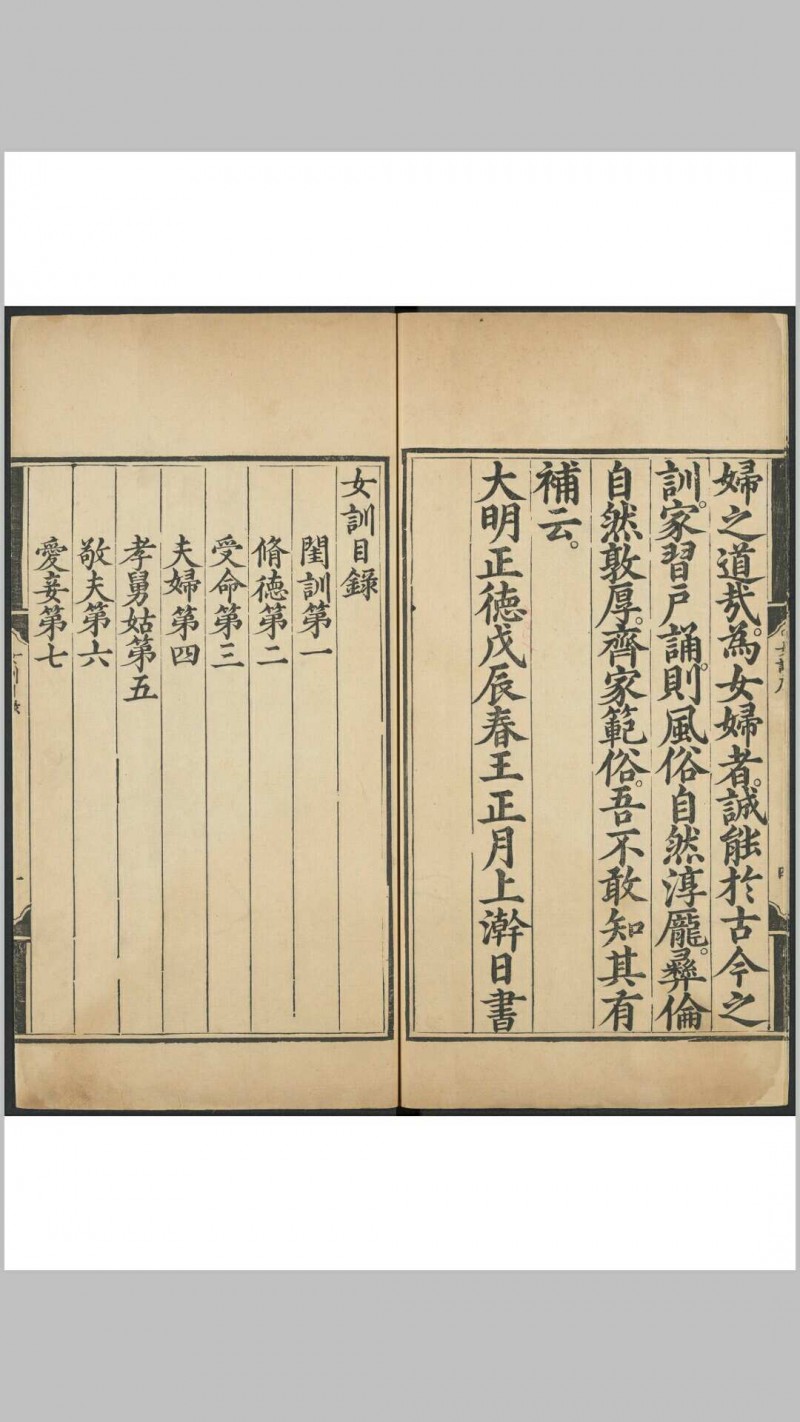 婦之道㢤。為女婦者。誠能於古今之
訓。家習戶誦。則風俗自然淳龐。彝倫
自然敦厚。齊家範俗。吾不敢知其有
補云。
大明正徳戊辰春王正月上澣日書
女訓目錄
閨訓第一
脩徳第二
受命第三
夫婦第四
孝舅姑第五
敬夫第六
愛妾第七